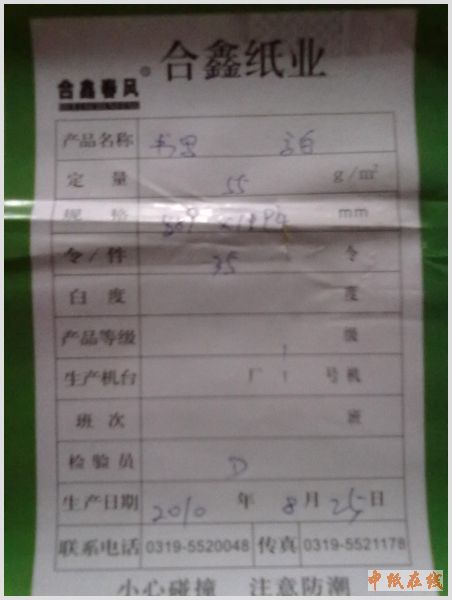 合鑫纸业
合鑫春风®
产品名称 书写
定量 55 g/m²
规格 mm
令/件 35 令
白度 度
产品等级 级
生产机台 厂 号机
班次 班
检验员 D
生产日期 2010 年 8 月 25 日
联系电话 0319-5520048 传真 0319-5521178
小心碰撞 注意防潮
中纸在线